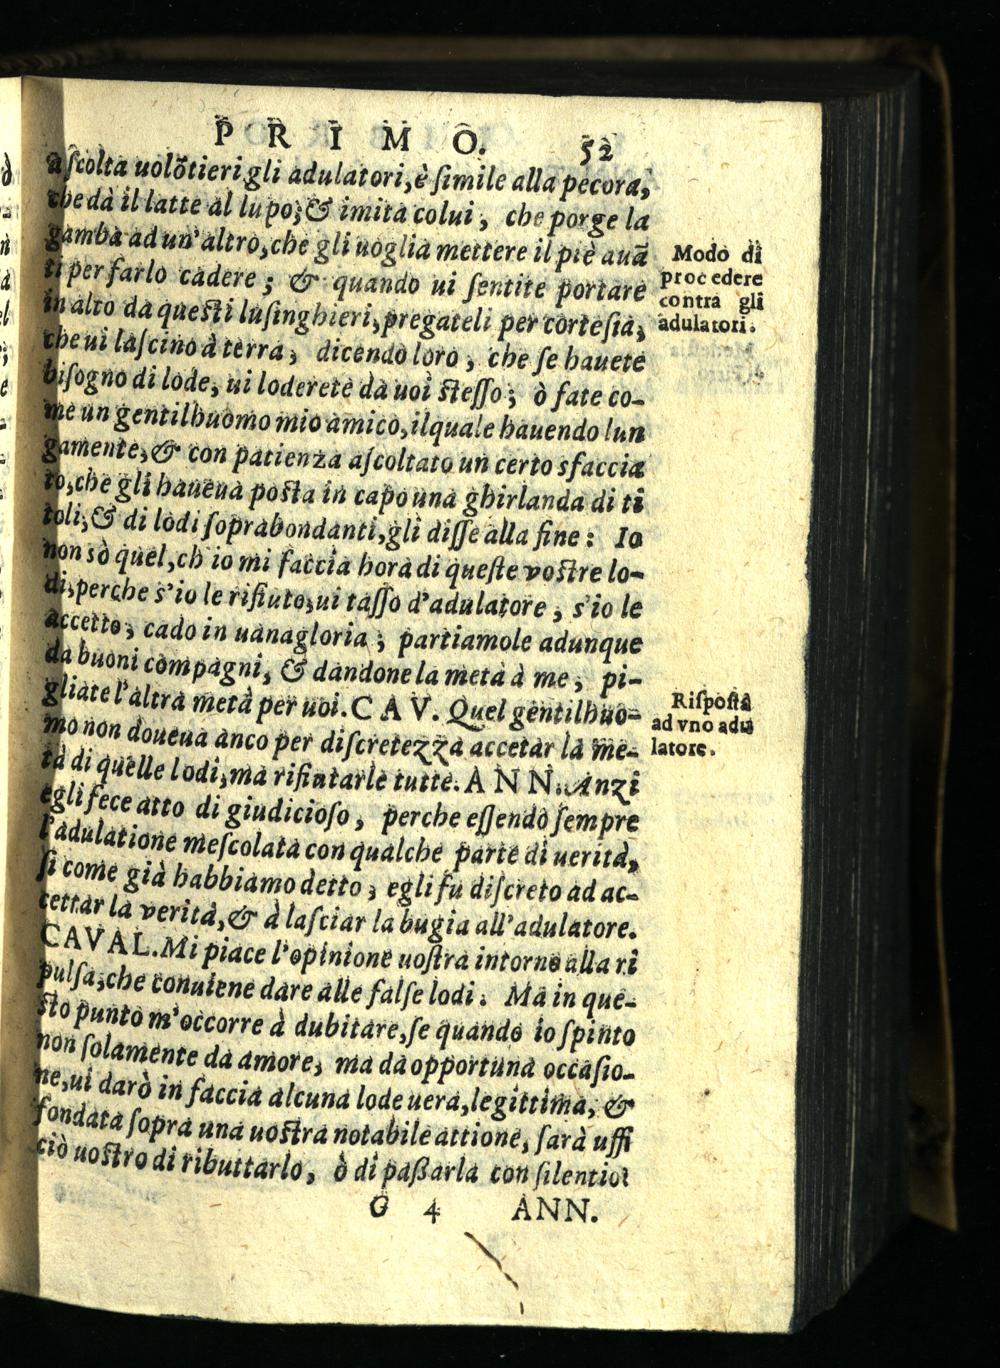 PRIMO. 52
ascolta uolõtieri gli adulatori, è simile alla pecora,
che dà il latte al lupo; & imita colui, che porge la
gamba ad un'altro, che gli uoglia mettere il piè auã
ti per farlo cadere; & quando ui sentite portare
in alto da questi lusinghieri, pregateli per cortesia,
che ui lascino à terra, dicendo loro, che se hauete
bisogno di lode, ui loderete da uoi stesso; ò fate co-
me un gentilhuomo mio amico, ilquale hauendo lun
gamente, & con patienza ascoltato un certo sfaccia
to, che gli haueua posta in capo una ghirlanda di ti
toli, & di lodi soprabondanti, gli disse alla fine: Io
non sò quel, ch'io mi faccia hora di queste vostre lo-
di, perche s'io le rifiuto, ui tasso d'adulatore, s'io le
accetto, cado in uanagloria; partiamole adunque
da buoni compagni, & dandone la metà à me, pi-
gliate l'altra metà per uoi. CAV. Quel gentilhuo-
mo non doueua anco per discretezza accetar la me-
tà di quelle lodi, ma rifiutarle tutte. ANN. Anzi
egli fece atto di giudicioso, perche essendo sempre
l'adulatione mescolata con qualche parte di uerità,
si come già habbiamo detto, egli fù discreto ad ac-
cettar la verità, & à lasciar la bugia all'adulatore.
CAVAL. Mi piace l'opinione uostra intorno alla ri
pulsa, che conuiene dare alle false lodi. Ma in que-
sto punto m'occorre à dubitare, se quando io spinto
non solamente da amore, ma da opportuna occasio-
ne, ui darò in faccia alcuna lode uera, legittima, &
fondata sopra una uostra notabile attione, sarà uffi
ciò uostro di ributtarlo, ò di paßarla con silentio?
G 4 ANN.
Modo di
procedere
contra gli
adulatori.
Risposta
ad vno adu
latore.